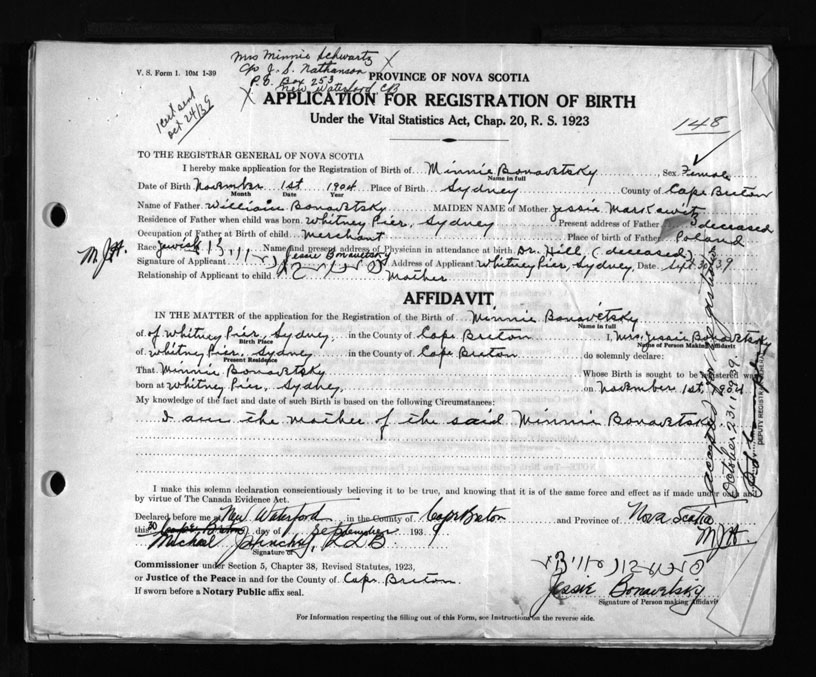 Mrs Minnie Schwartz X
c/o J. S. Nathanson
P.O. Box 253
New Waterford CB
V. S. Form 1. 10M 1-39
PROVINCE OF NOVA SCOTIA
X APPLICATION FOR REGISTRATION OF BIRTH
Under the Vital Statistics Act, Chap. 20, R. S. 1923
1 cert send
Oct 24/39
148
TO THE REGISTRAR GENERAL OF NOVA SCOTIA
I hereby make application for the Registration of Birth of Minnie Bonavetsky Sex Female
Name in full
Date of Birth November 1st 1904 Place of Birth Sydney County of Cape Breton
Month Date Year
Name of Father William Bonavetsky MAIDEN NAME of Mother Jessie Markawitz
Residence of Father when child was born Whitney Pier, Sydney Present address of Father deceased
Occupation of Father at Birth of child Merchant Place of birth of Father Poland
M.J.H. Race Jewish Name and present address of Physician in attendance at birth Dr. Hill, (deceased)
Signature of Applicant Jessie Bonavetsky Address of Applicant Whitney Pier, Sydney, Date Sept 30/39
Relationship of Applicant to child Mother
AFFIDAVIT
IN THE MATTER of the application for the Registration of the Birth of Minnie Bonavetsky
Name in full
of of Whitney Pier, Sydney, in the County of Cape Breton I, Mrs. Jessie Bonavetsky
Birth Place Name of Person Making Affidavit
of Whitney Pier, Sydney in the County of Cape Breton do solemnly declare:
Present Residence
That Minnie Bonavetsky Whose Birth is sought to be registered was
born at Whitney Pier, Sydney, on November 1st 1904
My knowledge of the fact and date of such Birth is based on the following Circumstances:
I am the mother of the said Minnie Bonavetsky
accepted for registration
October 23, 1939.
DEPUTY REGISTRAR GENERAL
I make this solemn declaration conscientiously believing it to be true, and knowing that it is of the same force and effect as if made under oath and
by virtue of The Canada Evidence Act.
Declared before me at New Waterford in the County of Cape Breton and Province of Nova Scotia
this 30 day of September 1939
M.J.H.
Michael LLB
Signature of
Commissioner under Section 5, Chapter 38, Revised Statutes, 1923,
or Justice of the Peace in and for the County of Cape Breton.
If sworn before a Notary Public affix seal.
Jessie Bonavetsky
Signature of Person making Affidavit
For Information respecting the filling out of this Form, see Instructions on the reverse side.